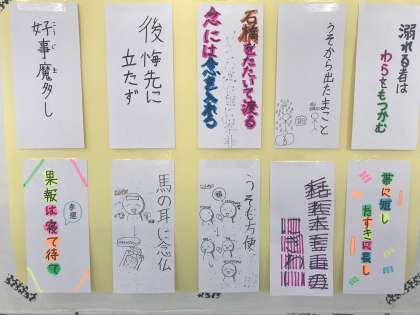 溺れる者は
わらをもつかむ
うそから出たまこと
石橋をたたいて渡る
念には念を入れる
後悔先に
立たず
好事魔多し
こうじま
帯に短し
たすきに長し
うそも方便
馬の耳に念仏
果報は寝て待て